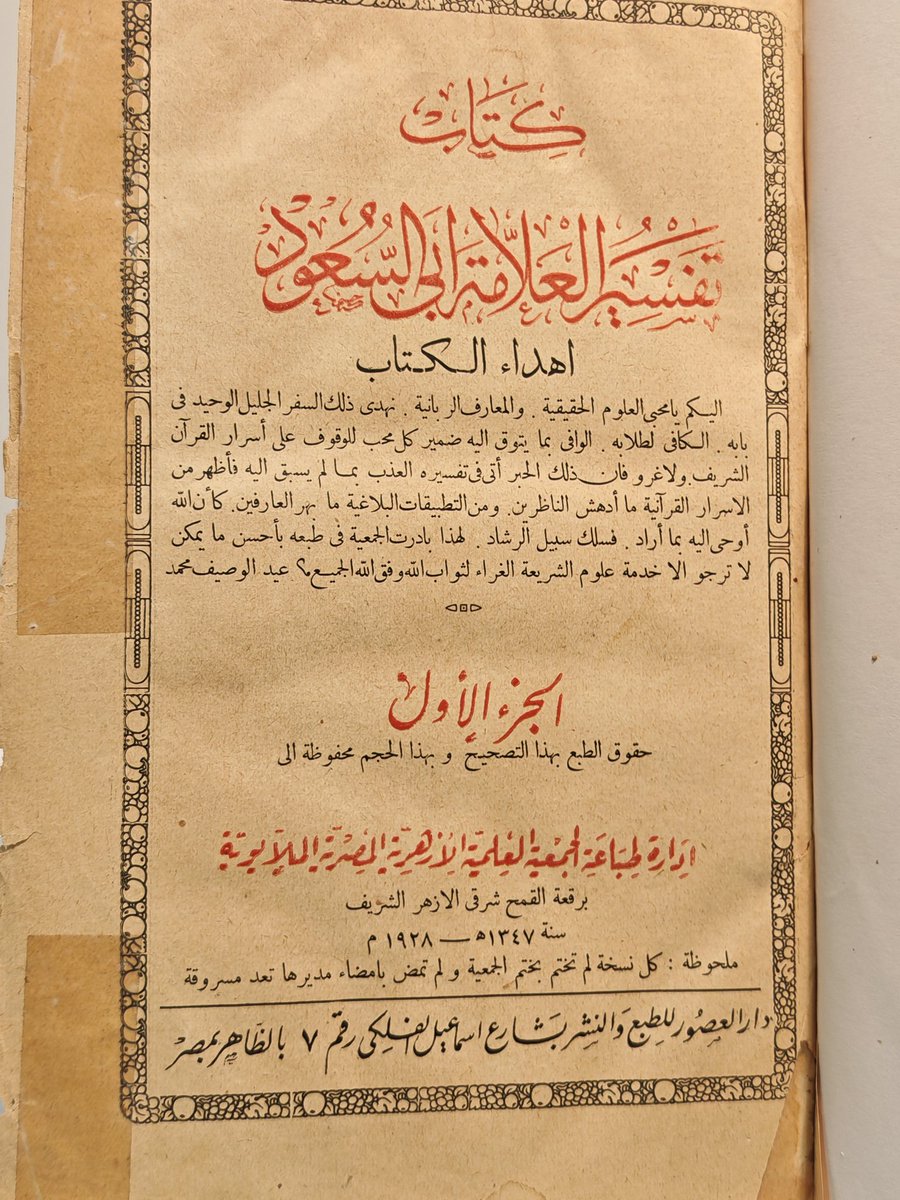 كتاب
تفسير العلامة أبى السعود
اهداء الكتاب
اليكم يا محبى العلوم الحقيقية . والمعارف الربانية . نهدى ذلك السفر الجليل الوحيد فى
بابه . الكافى لطلابه . الوافى بما يتوق اليه ضمير كل محب للوقوف على أسرار القرآن
الشريف ولاغرو فان ذلك الحبر أتى فى تفسيره العذب بما لم يسبق اليه فأظهر من
الاسرار القرآنية ما أدهش الناظرين . ومن التطبيقات البلاغية ما بهر العارفين . كأن الله
أوحى اليه بما أراد . فسلك سبيل الرشاد . لهذا بادرت الجمعية فى طبعه بأحسن ما يمكن
لا ترجو الا خدمة علوم الشريعة الغراء لثواب الله وفق الله الجميع؟ عبد الوصيف محمد
الجزء الأول
حقوق الطبع بهذا التصحيح و بهذا الحجم محفوظة الى
إدارة طباعة الجمعية العلمية الأزهرية المصرية الملايوية
برقعة القمح شرقى الازهر الشريف
سنة ١٣٤٧ه — ١٩٢٨ م
ملحوظة : كل نسخة لم تختم بختم الجمعية و لم تمض بامضاء مديرها تعد مسروقة
دار العصور للطبع والنشر بشارع اسماعيل الفلكى رقم ٧ بالظاهر بمصر